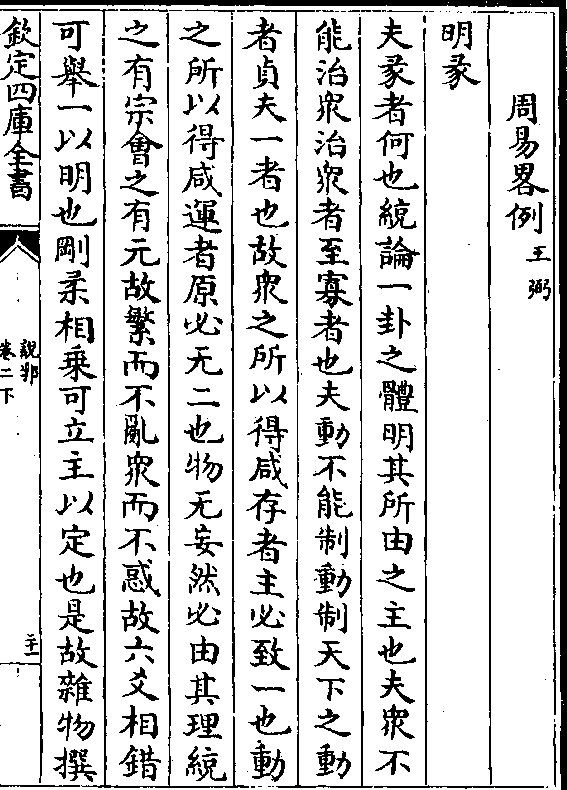 周易畧例王弼
明彖
夫彖者何也統論一卦之體明其所由之主也夫衆不
能治衆治衆者至寡者也夫動不能制動制天下之動
者貞夫一者也故衆之所以得咸存者主必致一也動
之所以得咸運者原必无二也物无妄然必由其理統
之有宗會之有元故繁而不亂衆而不惑故六爻相錯
可舉一以明也剛柔相乗可立主以定也是故雜物撰
欽定四庫全書
說郛
卷二下
二十一